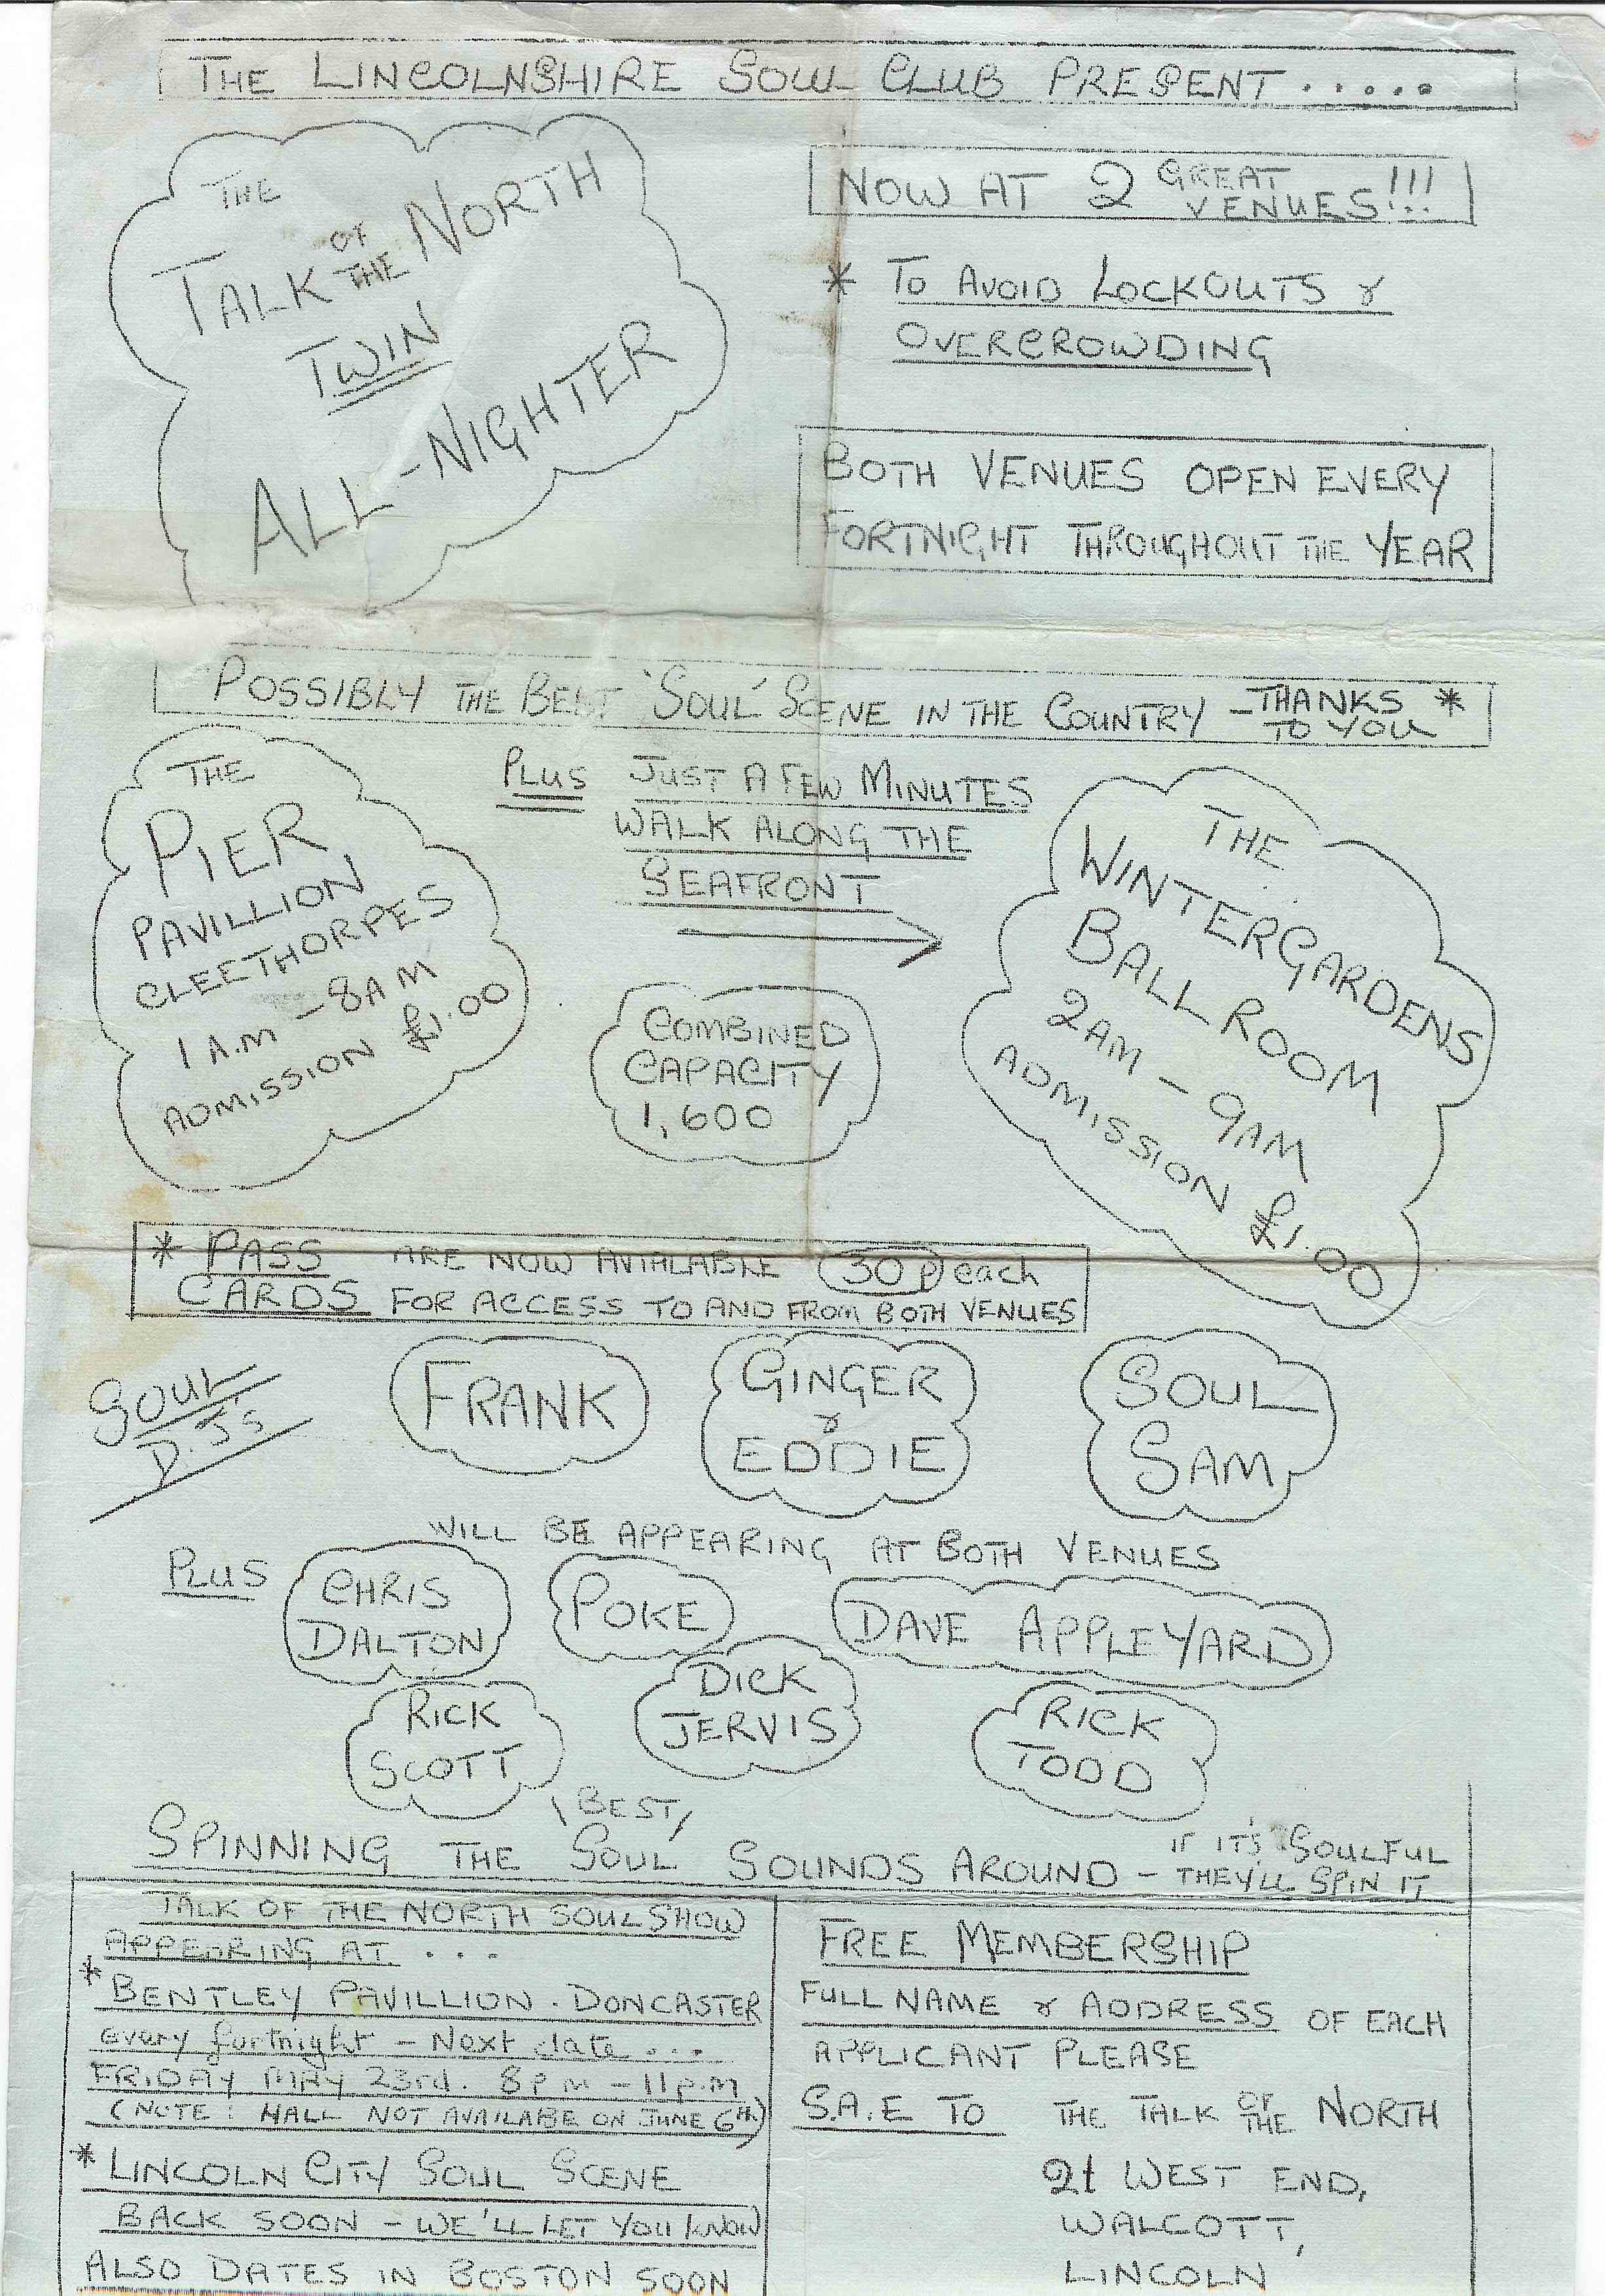 THE LINCOLNSHIRE SOUL CLUB PRESENT.....
THE
TALK OF THE NORTH
TWIN
ALL-NIGHTER
NOW AT 2 GREAT VENUES!!!
* TO AVOID LOCKOUTS &
OVERCROWDING
BOTH VENUES OPEN EVERY
FORTNIGHT THROUGHOUT THE YEAR
POSSIBLY THE BEST 'SOUL' SCENE IN THE COUNTRY - THANKS TO YOU *
THE
PIER
PAVILLION
CLEETHORPES
1 A.M - 8 A M
ADMISSION £1.00
PLUS JUST A FEW MINUTES
WALK ALONG THE
SEAFRONT
COMBINED
CAPACITY
1,600
THE
WINTERGARDENS
BALLROOM
2AM - 9AM
ADMISSION £1.00
* PASS ARE NOW AVIALABLE 30p each
CARDS FOR ACCESS TO AND FROM BOTH VENUES
SOUL
D.J'S
FRANK
GINGER
&
EDDIE
SOUL
SAM
WILL BE APPEARING AT BOTH VENUES
PLUS
CHRIS
DALTON
POKE
DAVE APPLEYARD
RICK
SCOTT
DICK
JERVIS
RICK
TODD
BEST
SPINNING THE SOUL SOUNDS AROUND - IF IT'S SOULFUL
THEY'LL SPIN IT
TALK OF THE NORTH SOUL SHOW
APPEARING AT. ...
* BENTLEY PAVILLION. DONCASTER
every fortnight - Next date....
FRIDAY MAY 23rd. 8pm - 11p.m
(NOTE: HALL NOT AVAILABE ON JUNE 6TH.)
* LINCOLN CITY SOUL SCENE
BACK SOON - WE'LL LET YOU KNOW
ALSO DATES IN BOSTON SOON
FREE MEMBERSHIP
FULL NAME & ADDRESS OF EACH
APPLICANT PLEASE
S.A.E TO THE TALK OF THE NORTH
21 WEST END,
WALCOTT,
LINCOLN